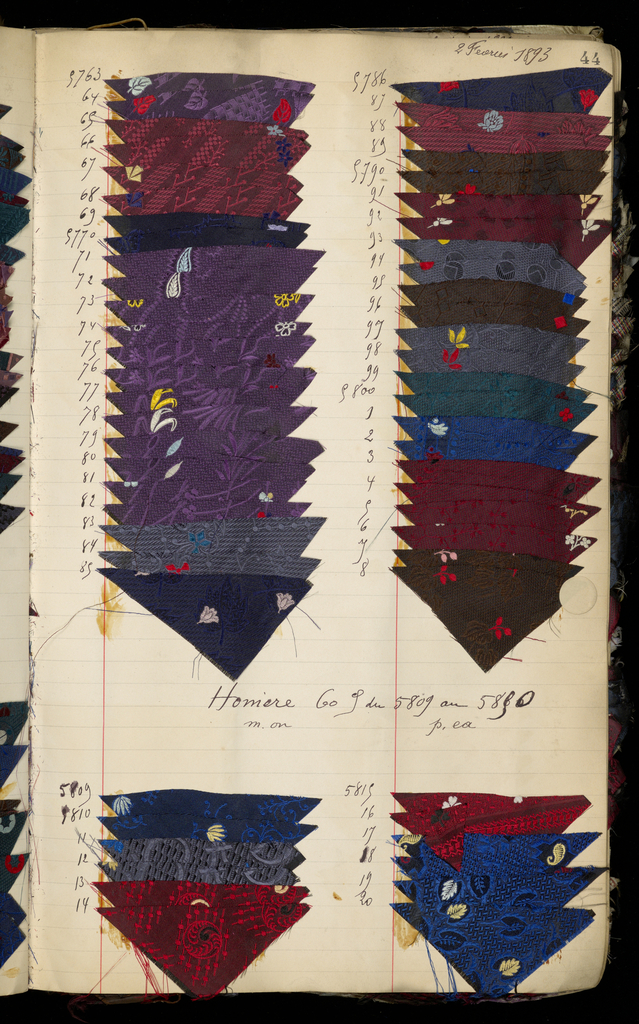 2 Fevrier 1893
44
5763
64
65
66
67
68
69
5770
71
72
73
74
75
76
77
78
79
80
81
82
83
84
85
5786
87
88
89
5790
91
92
93
94
95
96
97
98
99
5800
1
2
3
4
5
6
7
8
du 5809 au
m. on
5809
5810
11
12
13
14
5815
16
17
18
19
20